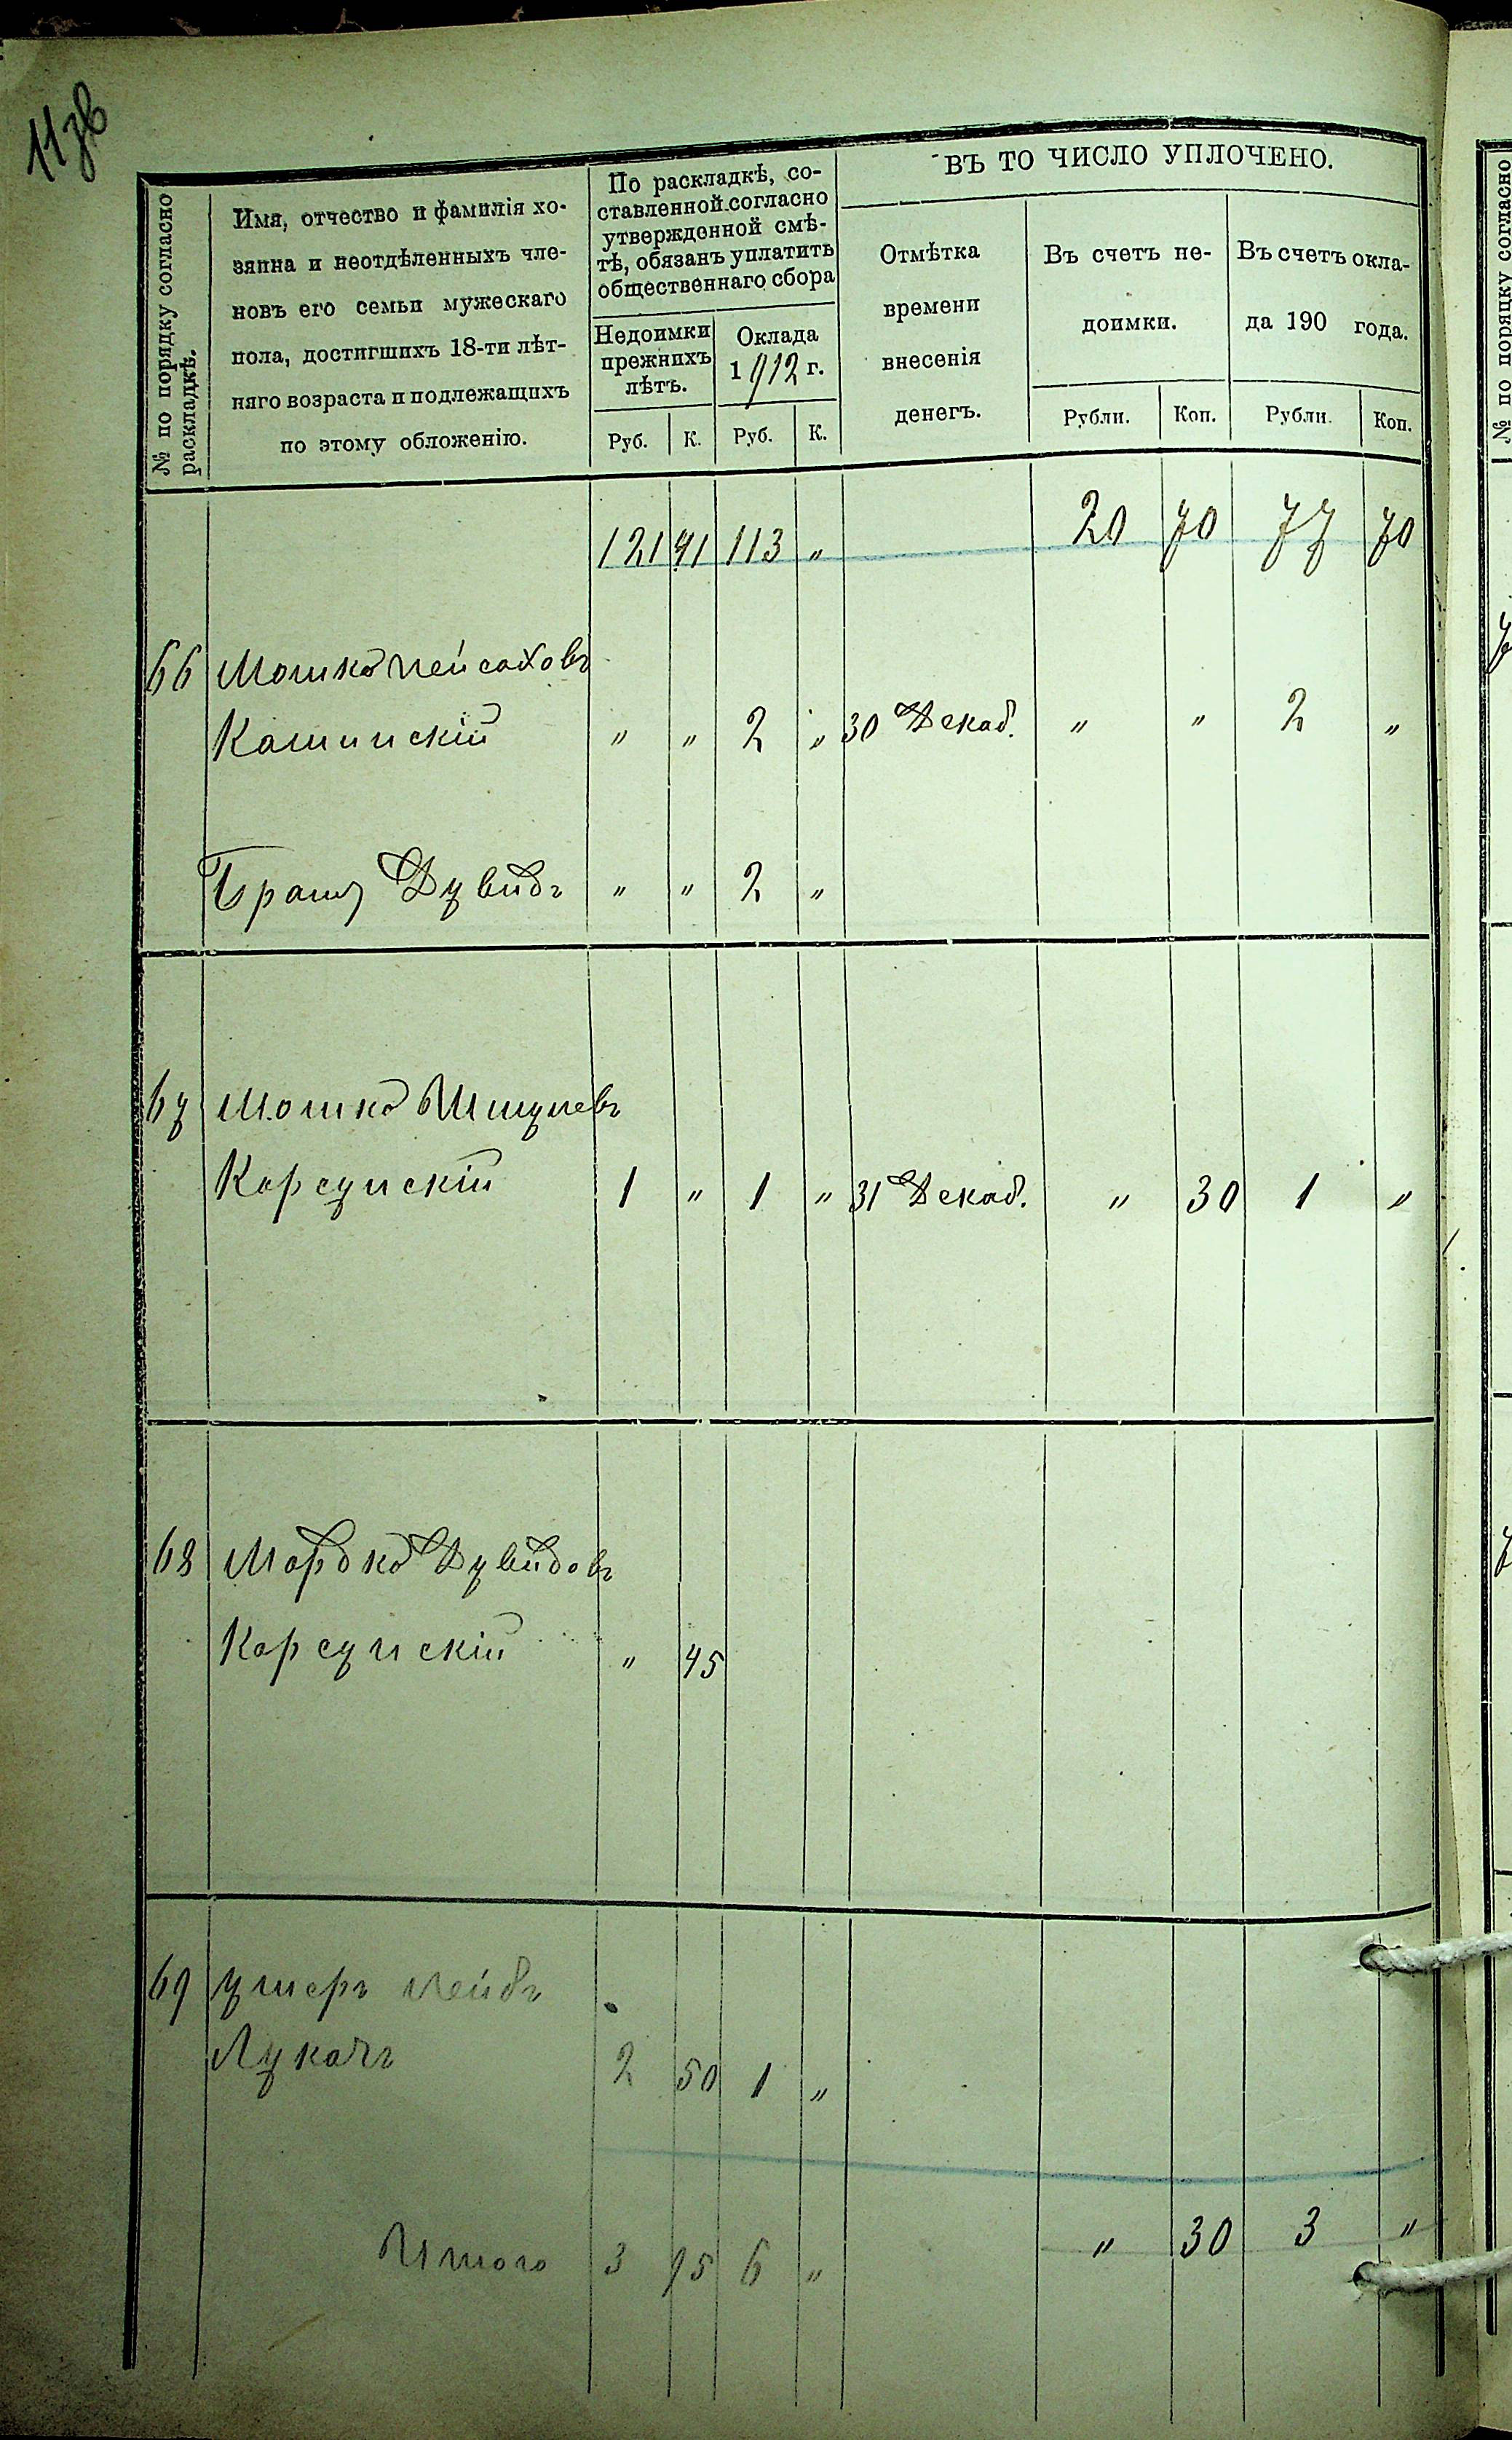 11зв
№ по порядку согласно раскладкѣ.
Имя, отчество и фамилія хо-
зяина и неотдѣленныхъ чле-
новъ его семьи мужескаго
пола, достигшихъ 18-ти лѣт-
няго возраста и подлежащихъ
по этому обложенію.
По раскладкѣ, со-
ставленной согласно
утвержденной смѣ-
тѣ, обязанъ уплатить
общественнаго сбора
Недоимки
прежнихъ
лѣтъ.
Оклада
1912 г.
Руб. К. Руб. К.
ВЪ ТО ЧИСЛО УПЛОЧЕНО.
Отмѣтка
времени
внесенія
денегъ.
Въ счетъ не-
доимки.
Въ счетъ окла-
да 190 года.
Рубли. Коп. Рубли. Коп.
121 41 113 „ 20 70 77 70
66 Мошко Пейсаховъ
Кашинскій „ „ 2 „ 30 Декаб. „ „ 2 „
Братъ Дувидъ „ „ 2 „
67 Мошко Ицковъ
Корсунскій 1 „ 1 „ 31 Декаб. „ 30 1 „
68 Мордко Дувидовъ
Корсунскій „ 45
69 Ушеръ Лейбъ
Лукачъ 2 50 1 „
Итого 3 95 6 „ „ 30 3 „
№ по порядку согласно